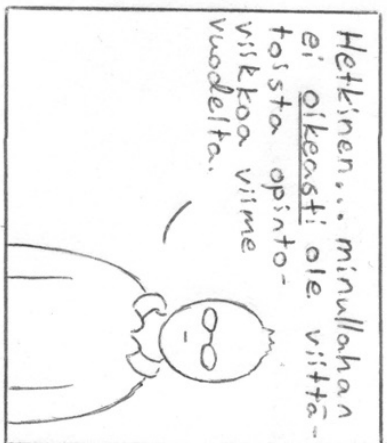 Hetkinen... minullahan
ei oikeasti ole viittä-
toista opinto-
viikkoa viime
vuodelta.